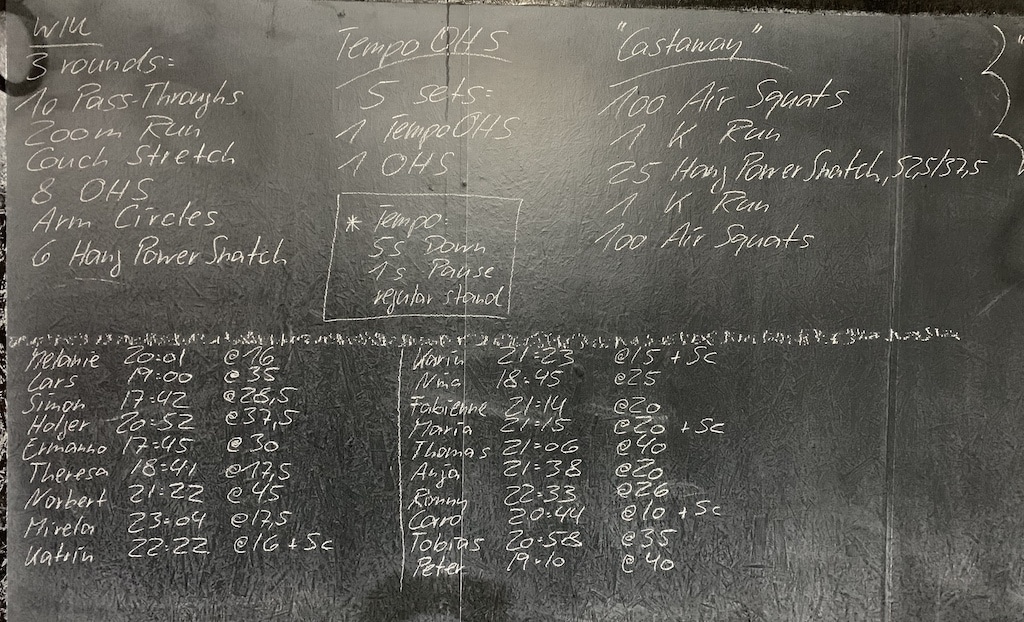 WU
3 rounds:
10 Pass-Throughs
200m Run
Couch Stretch
8 OHS
Arm Circles
6 Hang Power Snatch
Tempo OHS
5 sets:
1 Tempo OHS
1 OHS
* Tempo:
5s Down
1s Pause
regular stand
"Castaway"
100 Air Squats
1 K Run
25 Hang Power Snatch, 52,5/37,5
1 K Run
100 Air Squats
Melanie 20:01 @16
Lars 19:00 @35
Simon 17:42 @28,5
Holger 20:52 @37,5
Ermanno 17:45 @30
Theresa 18:41 @17,5
Norbert 21:22 @45
Mirela 23:04 @17,5
Katrin 22:22 @16 + Sc
Karin 21:23 @15 + Sc
Nma 18:45 @25
Fabienne 21:14 @20
Maria 21:15 @20 + Sc
Thomas 21:06 @40
Anja 21:38 @20
Ronny 22:33 @26
Caro 20:44 @10 + Sc
Tobias 20:58 @35
Peter 19:10 @40